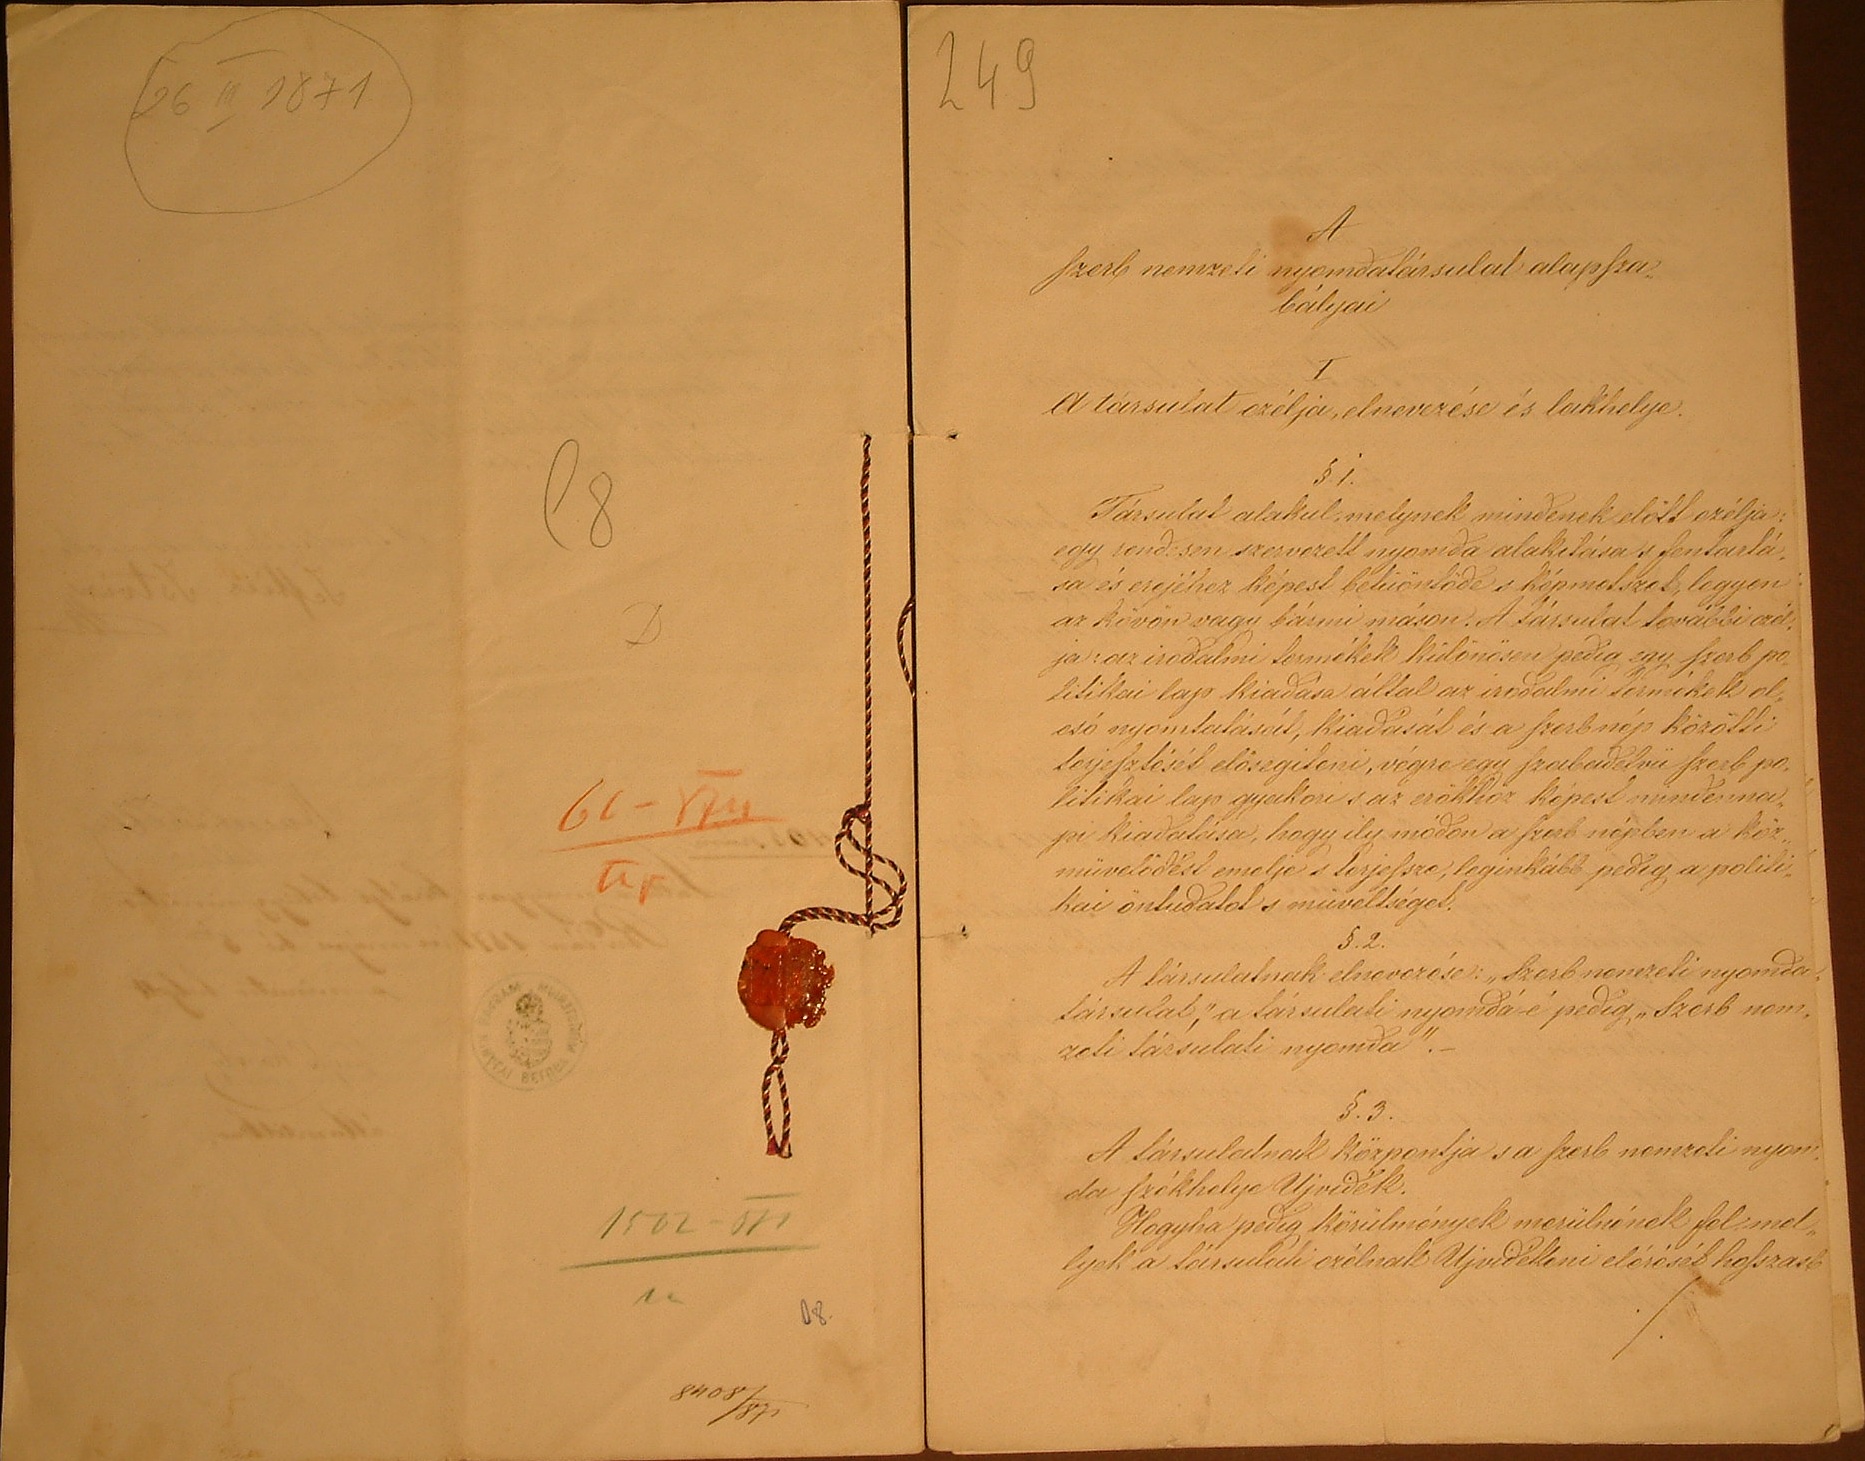 26 III 1871
C8
D
1502-871
D8.
8408/871
249
A
szerb nemzeti nyomdatársulat alapsza-
bályai
I
A társulat czélja, elnevezése és lakhelye.
§ 1.
Társulat alakul, melynek mindenek előtt czélja:
egy rendesen szervezett nyomda alakitása s fentartá-
sa és erejéhez képest betüöntöde s képmetszet, legyen
az kövön vagy bármi máson. A társulat további czél-
ja: az irodalmi termékek különösen pedig egy szerb po-
litikai lap kiadása által az irodalmi termékek ol-
csó nyomtatását, kiadását és a szerb nép közötti
terjesztését elősegiteni, végre egy szabadelvü szerb po-
litikai lap gyakori s az erőkhöz képest mindenna-
pi kiadatása, hogy ily módon a szerb népben a köz-
müvelődést emelje s terjessze, leginkább pedig a politi-
kai öntudatot s müveltséget.
§. 2.
A társulatnak elnevezése: „Szerb nemzeti nyomda-
társulat," a társulati nyomdá-é pedig „Szerb nem-
zeti társulati nyomda". –
§. 3.
A társulatnak központja s a szerb nemzeti nyom-
da székhelye Ujvidék.
Hogyha pedig körülmények merülnének fel mel-
lyek a társulati czélnak Ujvidékeni elérését hosszasb
./.